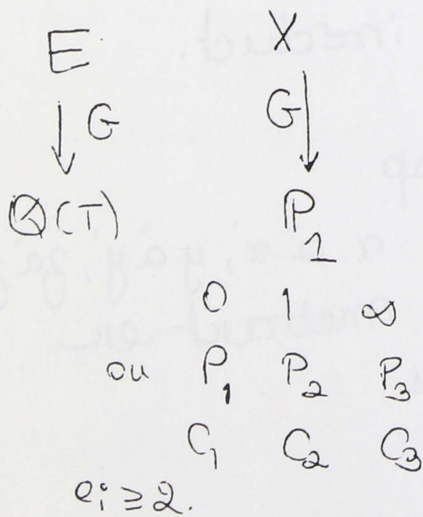 E X
↓ G G ↓
Q(T) P₁
0 1 ∞
ou P₁ P₂ P₃
C₁ C₂ C₃
eᵢ ≥ 2.